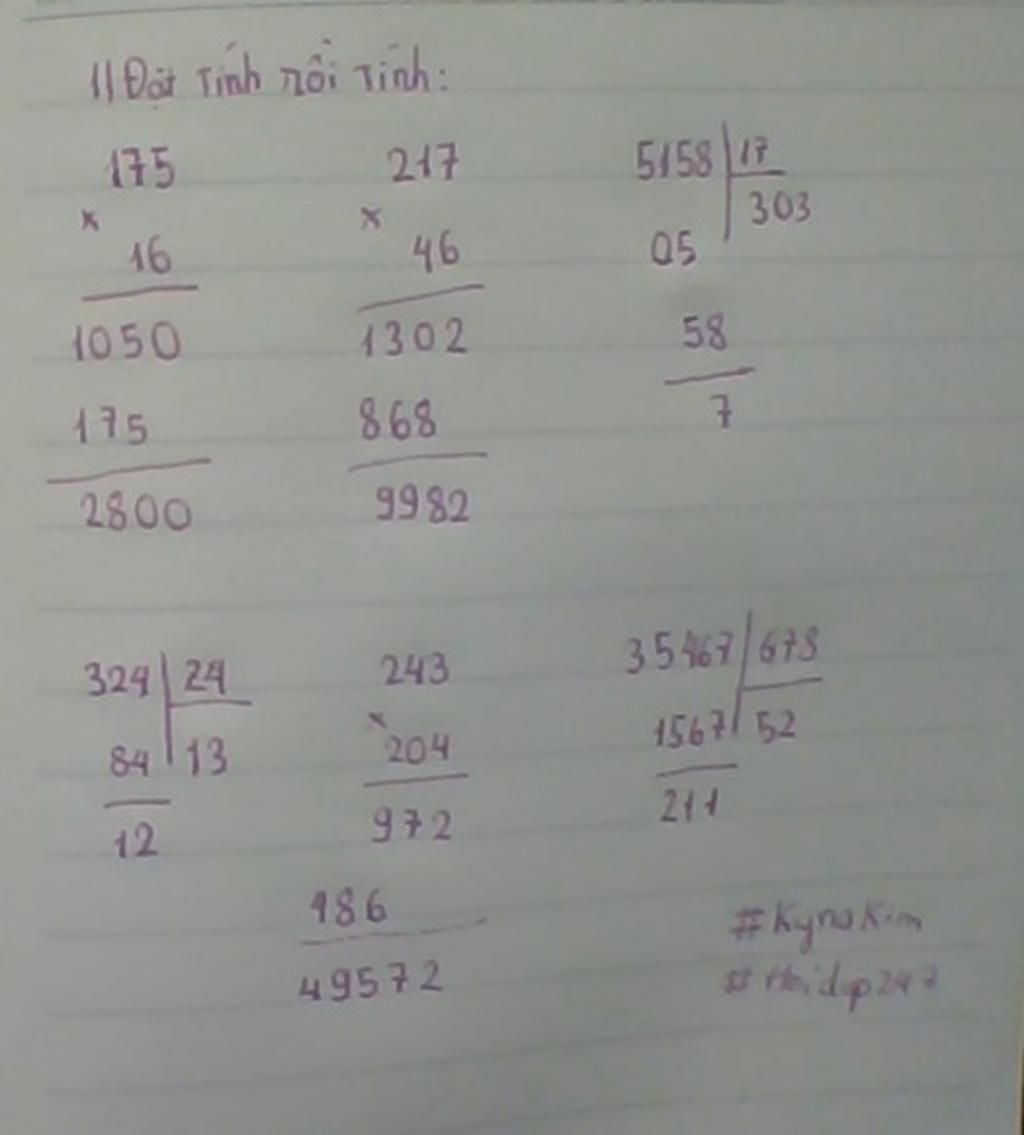 1) Đặt tính rồi tính:
175 217 5158 17
× × 303
16 46 05
1050 1302 58
175 868 7
2800 9982
324 24 243 35467 678
× 
84 13 204 1567 52
12 972 211
486
49572
#KynaKim
#Hoidap247